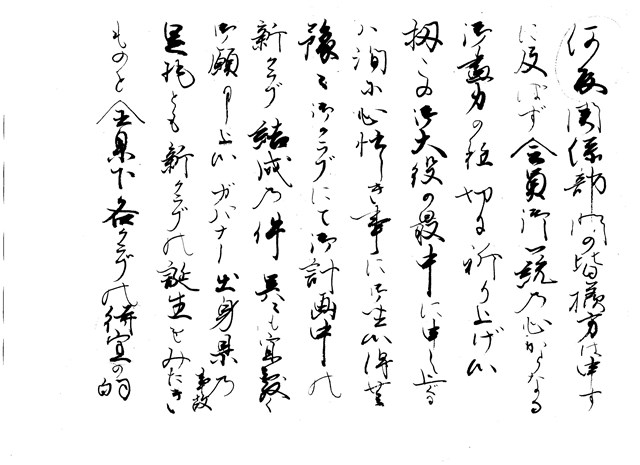 何卒関係部門の皆様方は申す
に及ばず全員御一統の心からなる
御尽力の程切に祈り上げ候
扨この御大役の最中に申し上ぐる
ハ洵に心忙しき事に御座候得共
豫て御クラブにて御計画中の
新クラブ結成の件 呉々も宜敷く
御願申上候 ガバナー出身県の事故
是非とも新クラブの誕生をみたき
ものと全県下各クラブの